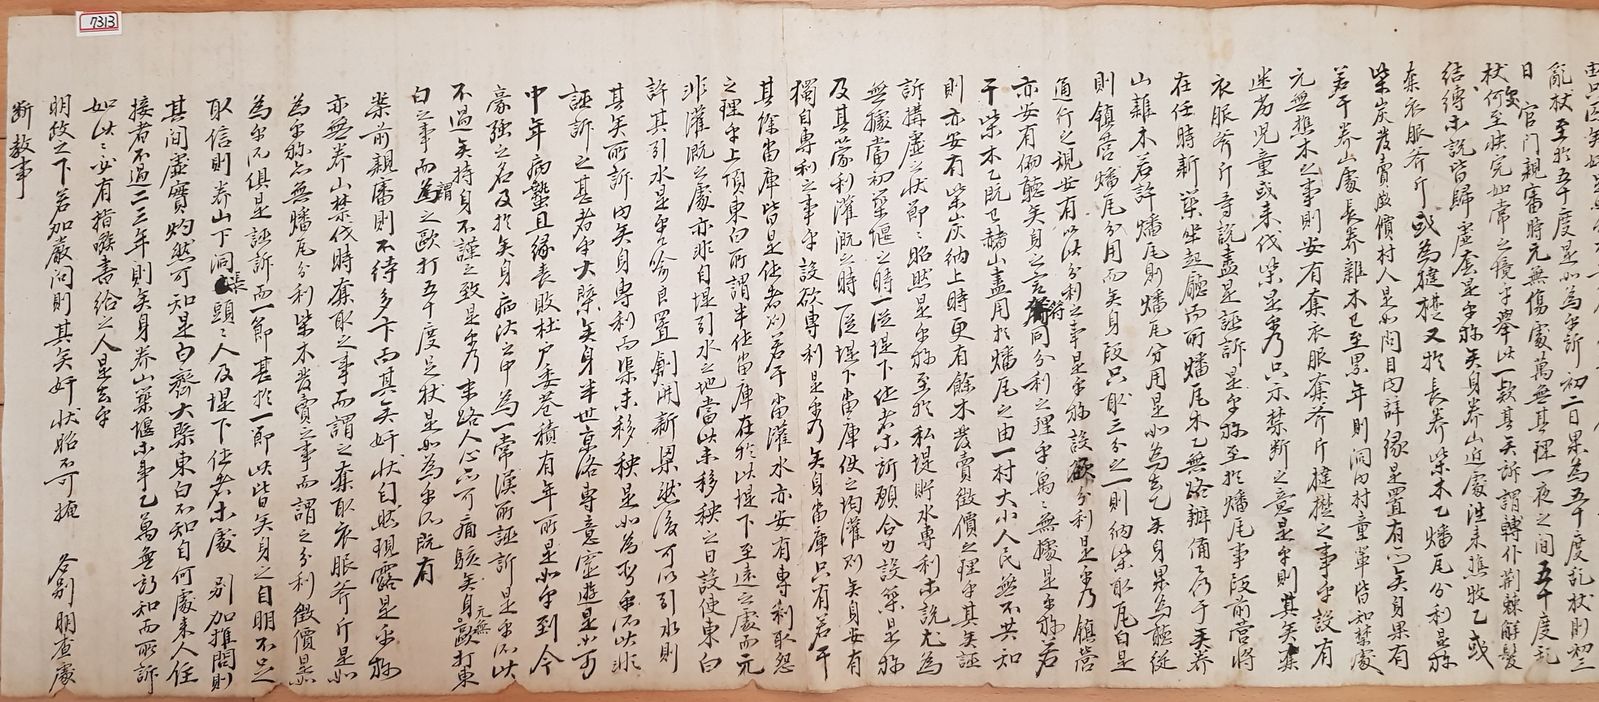 7313
亂杖至於五十度是如爲乎所初二日果爲五十度乱杖則初三
日官門親審時元無傷處萬無其理一夜之間五十度乱
杖何至快完如常之境乎擧此一款其矣訴謂轉仆荊棘解髮
結縛等說皆歸虛套是乎旀矣身養山近處往來樵牧乙或
奪衣服斧斤或爲撻楚又於長養柴木乙燔瓦分利是旀
柴炭發賣歲價村人是如問目內詳緣是置有亦矣身果有
若干養山處長養雜木已至累年則洞內村童輩皆知禁處
元無樵木之事則安有奪衣服奪斧斤撻楚之事乎設有
迷劣兒童或來伐柴是乎乃只示禁斷之意是乎則其矣奪
衣服斧斤等說盡是誣訴是乎旀至於燔瓦事段前營將
在任時新築坐起廳而所燔瓦木乙無路辦備乃于矣養
山雜木若許燔瓦則燔瓦分用是如爲去乙矣身果爲聽從
則鎭營燔瓦分用而矣身段只取三分之一則納柴取瓦自是
通行之規安有以此分利之事是乎旀設欲分利是乎乃鎭營
亦安有俯聽矣身之言符同分利之理乎萬萬無據是乎旀若
干柴木乙旣已赭山盡用於燔瓦之由一村大小人民無不共知
則亦安有柴炭納上時更有餘木發賣徵價之理乎其矣誣
訴搆虛之狀節節昭然是乎旀至於私堤貯水專利等說尤爲
無據當初築偃之時一從堤下作者等所願合力設築是旀
及其蒙利灌漑之時一從堤下當庫使之均灌則矣身安有
獨自專利之事乎設欲專利是乎乃矣身當庫只有若干
其餘當庫皆是作者則若干當灌水亦安有專利取怨
之理乎上項東白所謂半作當庫在於此堤下至遠之處而元
非灌漑之處亦非自堤引水之地當此未移秧之日設使東白
許其引水是乎喩良置創開新渠然後可以引水則
其矣所訴內矣身專利而渠未移秧是如爲乎所此非
誣訴之甚者乎大槩矣身半世京洛專意虛遊是如可
中年病蟄且緣喪敗杜戶委巷積有年所是如乎到今
豪强之名及於矣身病沈之中爲一常漢所誣訴是乎所此
不過矣持身不謹之致是乎乃末路人心亦可痛駭矣身元無歐打東
白之事而謂之歐打五十度是杖是如爲乎所旣有
案前親審則不待多卞而其矣奸狀自然現露是乎旀
亦無養山禁伐時奪取之事而謂之奪取衣服斧斤是如
爲乎旀亦無燔瓦分利柴木發賣之事而謂之分利徵價是如
爲乎所俱是誣訴而一節甚於一節此皆矣身之自明不足
取信則養山下洞張頭頭人及堤下作者等處別加推問則
其間虛實灼然可知是白齊大槩東白不知自何處來人任
接者不過二三年則矣身養山築堰等事乙萬無詳知而所訴
如此此必有指嗾書給之人是去乎
明政之下若加嚴問則其矣奸狀昭不可掩各別明查處
斷敎事